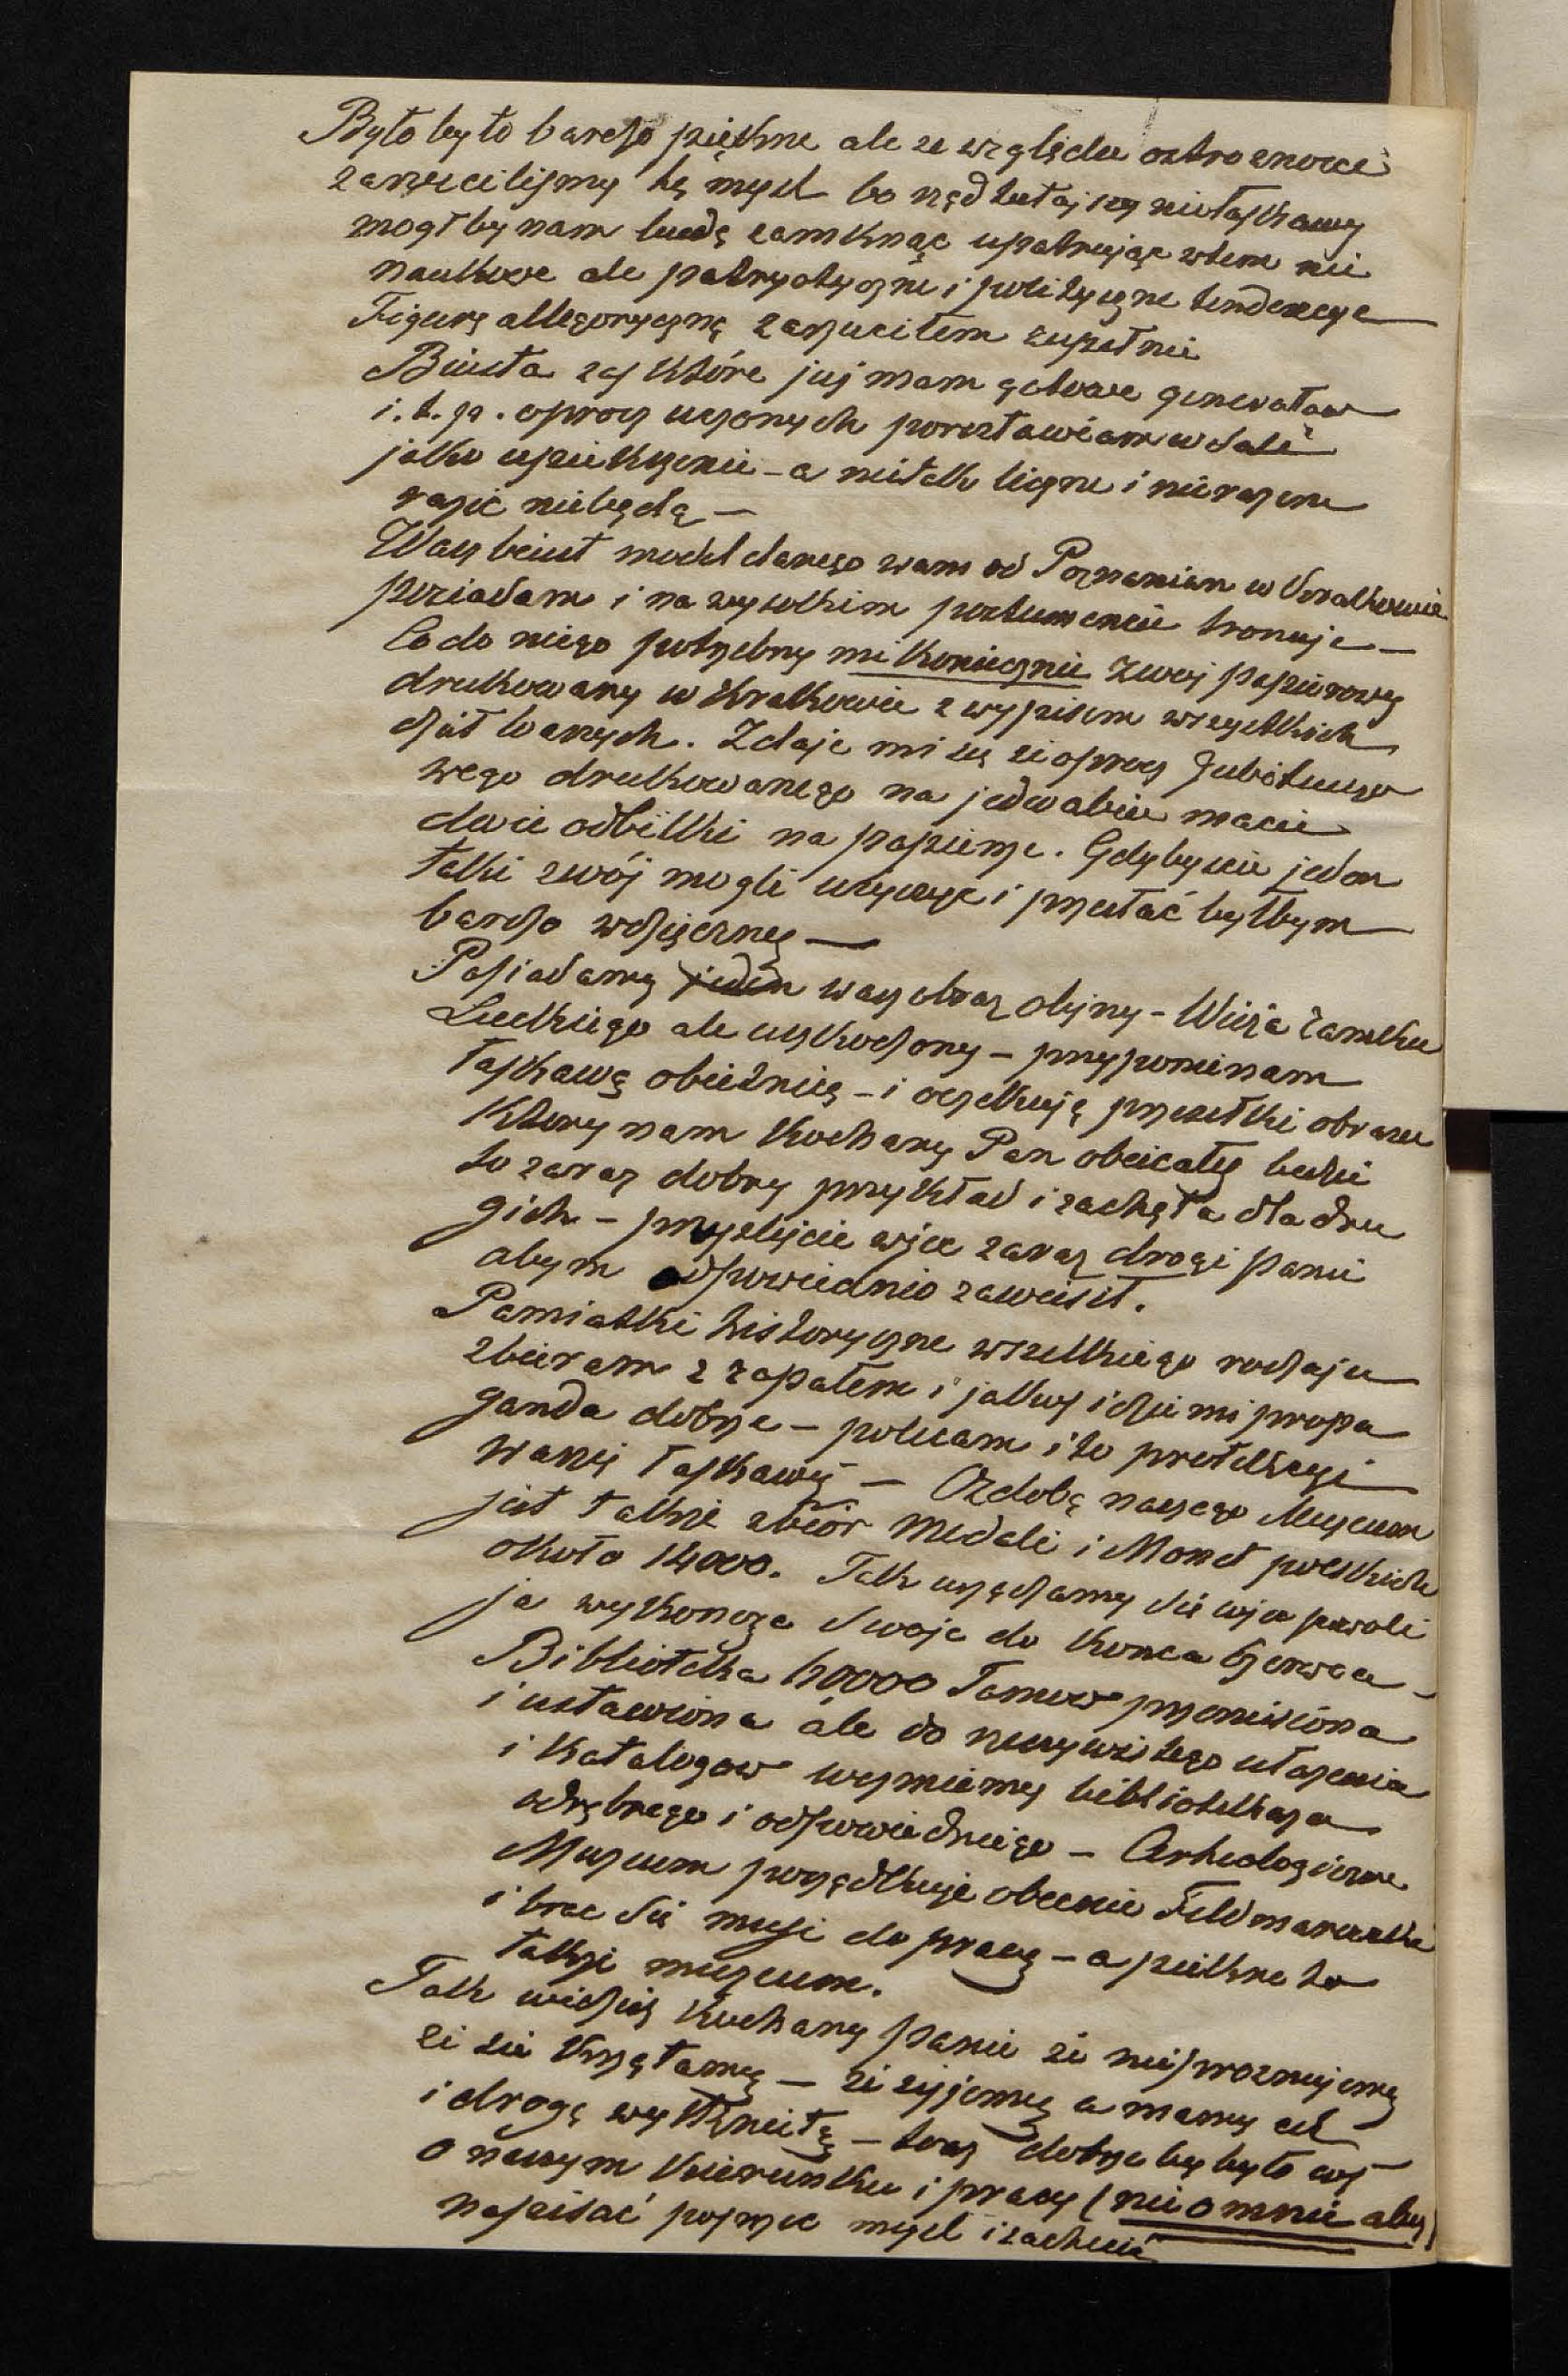 Było by to bardzo piękne ale ze względu ostroznosci
zarzuciliśmy tę mysl bo rząd tutejszy niełaskawy
mogł by nam budę zamknąć upatrując wtem nie
naukowe ale patryotyczne i polityczne tendencye
Figurę allegoryczną zarzuciłem zupełnie
Biusta zaś które już mam gotowe generałow
i. t. p. oprocz uczonych porostawiam w sali
jako upiekszenie – a nietak liczne i nierazem
razić niebędą —
Wasz biust model danego wam od Poznanian w Krakowie
posiadam i na wysokim postumencie tronuje —
Co do niego potrzebny mi koniecznie Zwoj papierowy
drukowany w Krakowie z wypisem wszystkich
dzieł Waszych. Zdaje mi się ze oprocz Jubileuszo
wego drukowanego na jedwabiu macie
dwie odbitki na papierze. Gdybyscie jeden
taki zwój mogli użyczyc i przesłać byłbym
bardzo wdzięczny —
Posiadamy jeden wasz obraz olejny – Wieża Zamku
Luckiego ale uszkodzony – przypominam
łaskawą obietnicę – i oczekuję przesełki obrazu
Ktory nam Kochany Pan obiecały będzie
to zaraz dobry przykład i zachęta dla dru
gich – przyslijcie więc zaraz drogi panie
abym odpowiednio zawiesił.
Pamiatki historyczne wszelkiego rodzaju
zbieram z zapałem i jakoś idzie mi propa
ganda dobrze – polecam i to protekcyi
Waszej łaskawej — Ozdobą naszego Muzeum
jest także zbiór medali i Monet polskich
około 14000. Tak urządzamy sie więc powoli
ja wykoncze swoje do konca Czerwca –
Biblioteka 60000 Tomow przeniesiona
i ustawiona ale do rzeczywistego ułozenia
i katalogow wezmiemy bibliotekarza
odrębnego i odpowiedniego – Archeologiczne
Muzeum porządkuje obecnie Feldmanowski
i brac sie musi do pracy – a piekne to
także muzeum.
Tak widzisz Kochany panie ze nieprożnujemy
ze sie krzątamy — ze zyjemy a mamy cel
i drogę wytkniętą – toz dobrze by było coś
o naszym kierunku i pracy (nie o mnie aby)
napisać poprzec mysl i zachecić